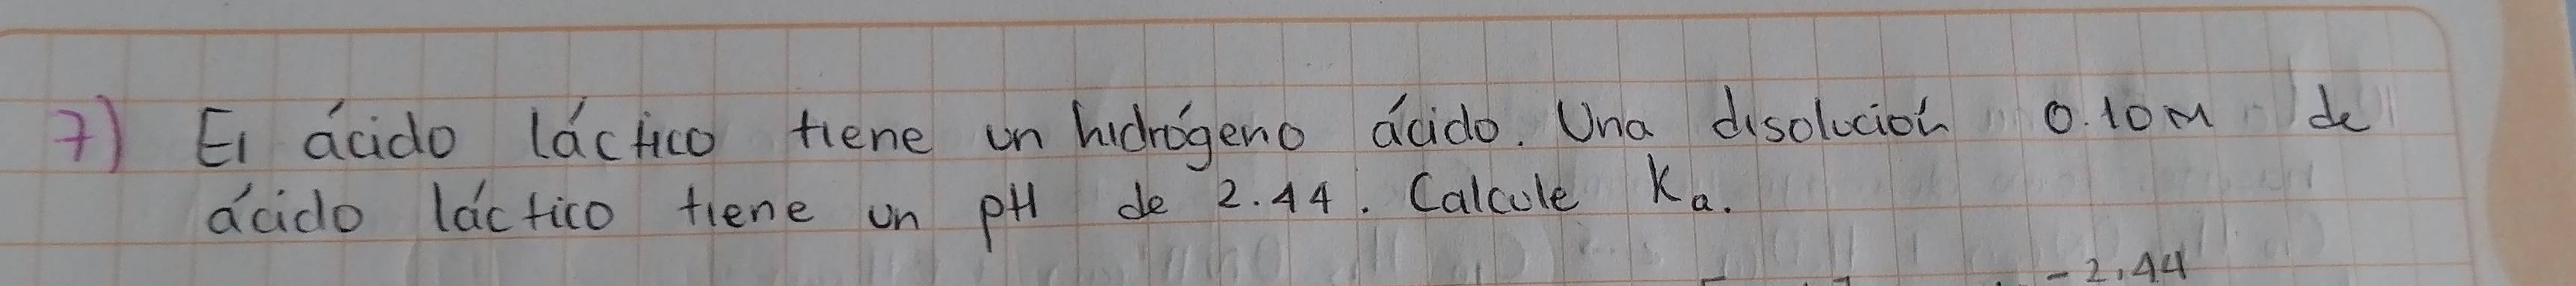 7) El ácido láctico tiene un hidrógeno ácido. Una disolución 0.10M de
ácido láctico tiene un pH de 2.44. Calcule Ka.
-2.44